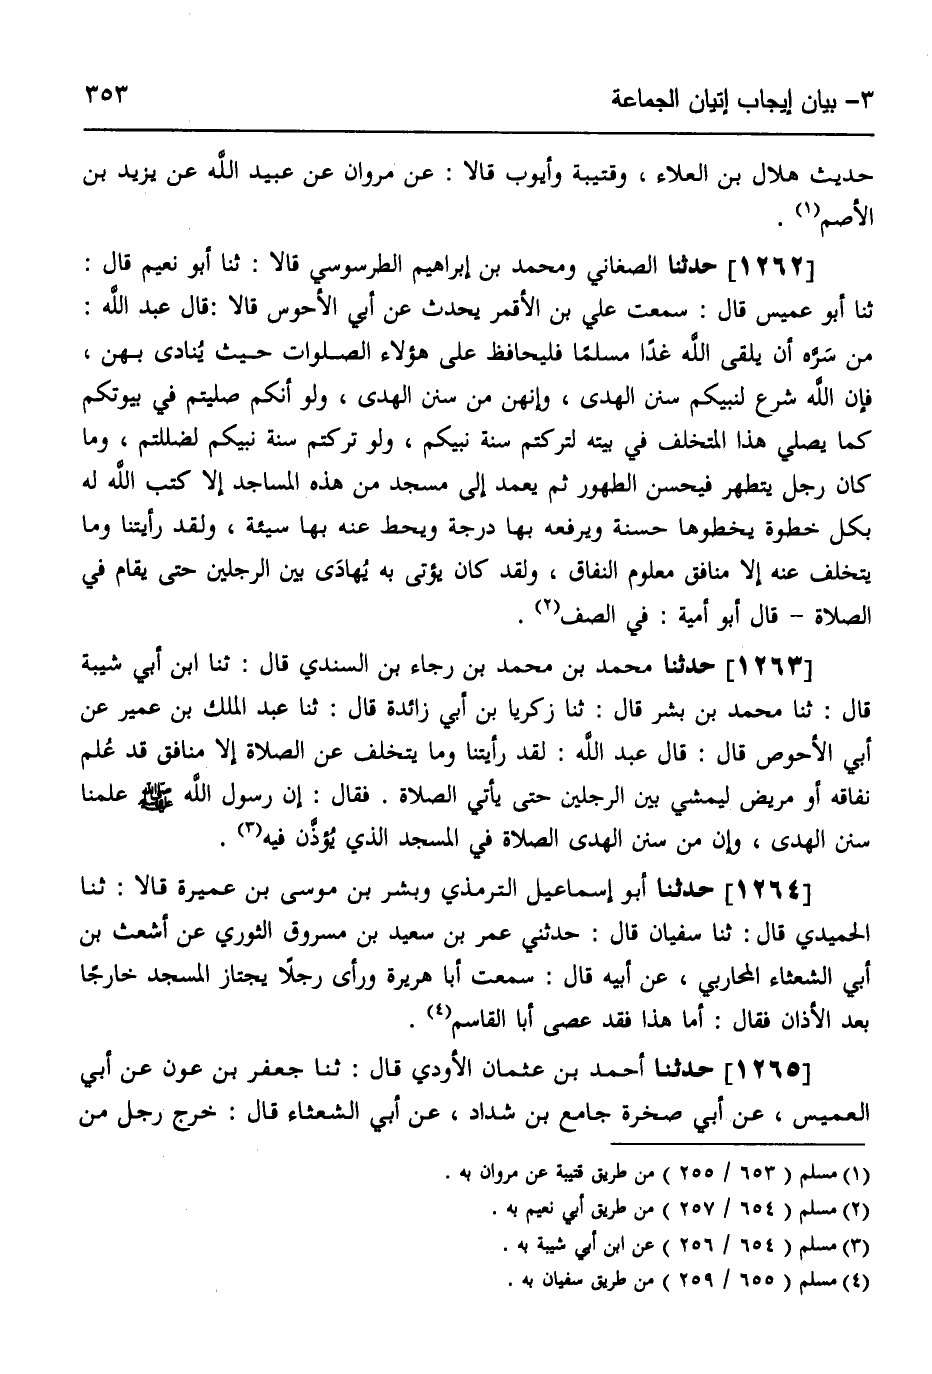 ٣- بيان إيجاب إتيان الجماعة ٣٥٣
حديث هلال بن العلاء ، وقتيبة وأيوب قالا : عن مروان عن عبيد اللَّه عن يزيد بن
الأصم(١) .
[١٢٦٢] حدثنا الصغاني ومحمد بن إبراهيم الطرسوسي قالا : ثنا أبو نعيم قال :
ثنا أبو عميس قال : سمعت علي بن الأقمر يحدث عن أبي الأحوص قالا :قال عبد اللَّه :
من سَرَّه أن يلقى اللَّه غدًا مسلمًا فليحافظ على هؤلاء الصلوات حيث يُنادى بهن ،
فإن اللَّه شرع لنبيكم سنن الهدى ، وإنهن من سنن الهدى ، ولو أنكم صليتم في بيوتكم
كما يصلي هذا المتخلف في بيته لتركتم سنة نبيكم ، ولو تركتم سنة نبيكم لضللتم ، وما
كان رجل يتطهر فيحسن الطهور ثم يعمد إلى مسجد من هذه المساجد إلا كتب اللَّه له
بكل خطوة يخطوها حسنة ويرفعه بها درجة ويحط عنه بها سيئة ، ولقد رأيتنا وما
يتخلف عنه إلا منافق معلوم النفاق ، ولقد كان يؤتى به يُهادَى بين الرجلين حتى يقام في
الصلاة – قال أبو أمية : في الصف(٢) .
[١٢٦٣] حدثنا محمد بن محمد بن رجاء بن السندي قال : ثنا ابن أبي شيبة
قال : ثنا محمد بن بشر قال : ثنا زكريا بن أبي زائدة قال : ثنا عبد الملك بن عمير عن
أبي الأحوص قال : قال عبد اللَّه : لقد رأيتنا وما يتخلف عن الصلاة إلا منافق قد عُلم
نفاقه أو مريض ليمشي بين الرجلين حتى يأتي الصلاة . فقال : إن رسول اللَّه ﷺ علمنا
سنن الهدى ، وإن من سنن الهدى الصلاة في المسجد الذي يُؤذَّن فيه(٣) .
[١٢٦٤] حدثنا أبو إسماعيل الترمذي وبشر بن موسى بن عميرة قالا : ثنا
الحميدي قال : ثنا سفيان قال : حدثني عمر بن سعيد بن مسروق الثوري عن أشعث بن
أبي الشعثاء المحاربي ، عن أبيه قال : سمعت أبا هريرة ورأى رجلًا يجتاز المسجد خارجًا
بعد الأذان فقال : أما هذا فقد عصى أبا القاسم(٤) .
[١٢٦٥] حدثنا أحمد بن عثمان الأودي قال : ثنا جعفر بن عون عن أبي
العميس ، عن أبي صخرة جامع بن شداد ، عن أبي الشعثاء قال : خرج رجل من
(١) مسلم ( ٦٥٣ / ٢٥٥ ) من طريق قتيبة عن مروان به .
(٢) مسلم ( ٦٥٤ / ٢٥٧ ) من طريق أبي نعيم به .
(٣) مسلم ( ٦٥٤ / ٢٥٦ ) عن ابن أبي شيبة به .
(٤) مسلم ( ٦٥٥ / ٢٥٩ ) من طريق سفيان به .